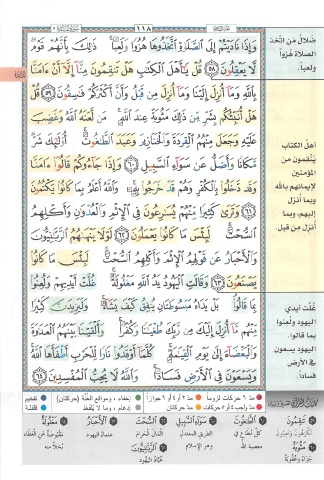 ١١٨
وَإِذَا نَادَيْتُمْ إِلَى الصَّلَوٰةِ اتَّخَذُوهَا هُزُوًا وَلَعِبًا ۚ ذَٰلِكَ بِأَنَّهُمْ قَوْمٌ
لَّا يَعْقِلُونَ ٥٨ قُلْ يَٰٓأَهْلَ الْكِتَٰبِ هَلْ تَنقِمُونَ مِنَّآ إِلَّآ أَنْ ءَامَنَّا
بِاللَّهِ وَمَآ أُنزِلَ إِلَيْنَا وَمَآ أُنزِلَ مِن قَبْلُ وَأَنَّ أَكْثَرَكُمْ فَٰسِقُونَ ٥٩ قُلْ
هَلْ أُنَبِّئُكُم بِشَرٍّ مِّن ذَٰلِكَ مَثُوبَةً عِندَ اللَّهِ ۚ مَن لَّعَنَهُ اللَّهُ وَغَضِبَ
عَلَيْهِ وَجَعَلَ مِنْهُمُ الْقِرَدَةَ وَالْخَنَازِيرَ وَعَبَدَ الطَّٰغُوتَ ۚ أُو۟لَٰٓئِكَ شَرٌّ
مَّكَانًا وَأَضَلُّ عَن سَوَآءِ السَّبِيلِ ٦٠ وَإِذَا جَآءُوكُمْ قَالُوٓا۟ ءَامَنَّا
وَقَد دَّخَلُوا۟ بِالْكُفْرِ وَهُمْ قَدْ خَرَجُوا۟ بِهِۦ ۚ وَاللَّهُ أَعْلَمُ بِمَا كَانُوا۟ يَكْتُمُونَ
٦١ وَتَرَىٰ كَثِيرًا مِّنْهُمْ يُسَٰرِعُونَ فِى الْإِثْمِ وَالْعُدْوَٰنِ وَأَكْلِهِمُ
السُّحْتَ ۚ لَبِئْسَ مَا كَانُوا۟ يَعْمَلُونَ ٦٢ لَوْلَا يَنْهَىٰهُمُ الرَّبَّٰنِيُّونَ
وَالْأَحْبَارُ عَن قَوْلِهِمُ الْإِثْمَ وَأَكْلِهِمُ السُّحْتَ ۚ لَبِئْسَ مَا كَانُوا۟
يَصْنَعُونَ ٦٣ وَقَالَتِ الْيَهُودُ يَدُ اللَّهِ مَغْلُولَةٌ ۚ غُلَّتْ أَيْدِيهِمْ وَلُعِنُوا۟
بِمَا قَالُوا۟ ۘ بَلْ يَدَاهُ مَبْسُوطَتَانِ يُنفِقُ كَيْفَ يَشَآءُ ۚ وَلَيَزِيدَنَّ كَثِيرًا
مِّنْهُم مَّآ أُنزِلَ إِلَيْكَ مِن رَّبِّكَ طُغْيَٰنًا وَكُفْرًا ۚ وَأَلْقَيْنَا بَيْنَهُمُ الْعَدَٰوَةَ
وَالْبَغْضَآءَ إِلَىٰ يَوْمِ الْقِيَٰمَةِ ۚ كُلَّمَآ أَوْقَدُوا۟ نَارًا لِّلْحَرْبِ أَطْفَأَهَا اللَّهُ ۚ
وَيَسْعَوْنَ فِى الْأَرْضِ فَسَادًا ۚ وَاللَّهُ لَا يُحِبُّ الْمُفْسِدِينَ ٦٤
ضلال من اتخذ
الصلاة هُزُواً
ولعباً.
أهل الكتاب
ينقمون من
المؤمنين
لإيمانهم بالله
وبما أنزل
إليهم، وبما
أنزل من قبل.
غُلّت أيدي
اليهود ولُعنوا
بما قالوا.
اليهود يسعون
في الأرض
فساداً.
مدّ ٦ حركات لزوماً
مدّ ٢ أو ٤ أو ٦ جوازاً
إخفاء، ومواقع الغُنَّة (حركتان)
تفخيم
مدّ واجب ٤ أو ٥ حركات
مدّ حركتان
إدغام، وما لا يُلفَظ
قلقلة
تَنقِمُونَ
الطَّاغُوتَ
سَوَاءِ السَّبِيلِ
السُّحْتَ
الأَحْبَارُ
مَغْلُولَةٌ
المال الحرام
علماء اليهود
الطريق المعتدل
وهو الإسلام
مَثُوبَةً
جزاءً وعقوبةً
الرَّبَّانِيُّونَ
عُبّاد اليهود